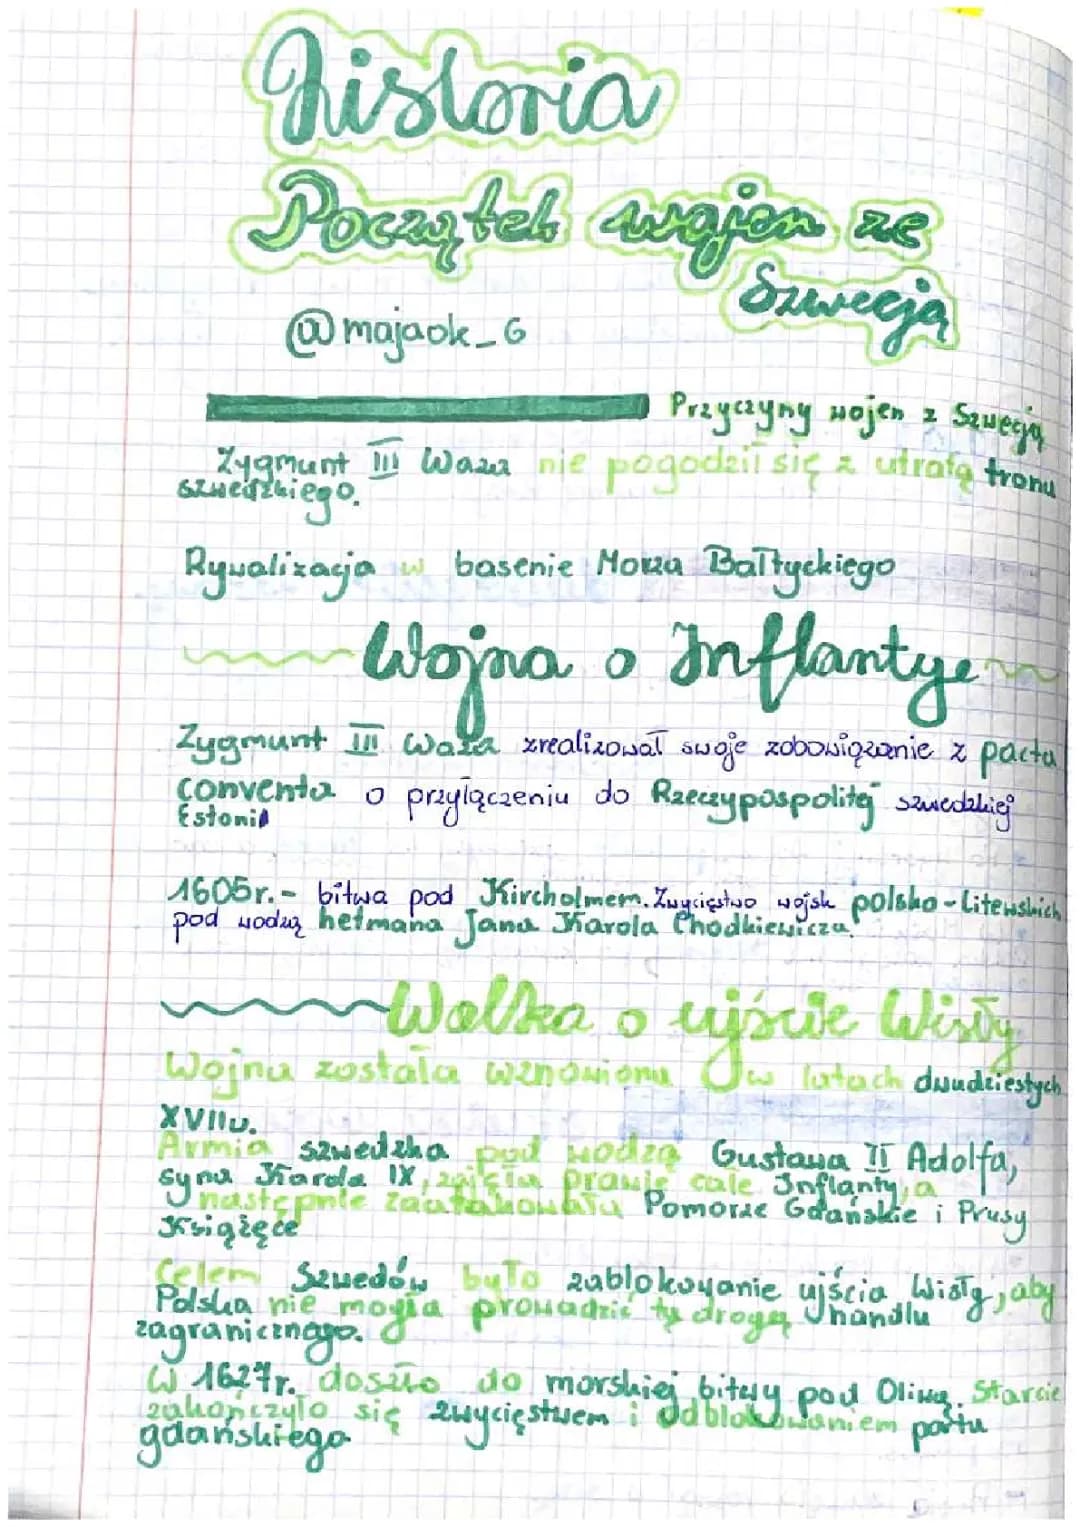 Historia
Początek wojen ze
Szwecją
@majaok_6
Przyczyny wojen z Szwecją
Zygmunt III Waza nie pogodził się z utratą tronu
szwedzkiego.
Rywalizacja w basenie Morza Bałtyckiego
Wojna o Inflantye
Zygmunt III Waza zrealizował swoje zobowiązanie z pacta
conventa o przyłączeniu do Rzeczypospolitej szwedzkiej
Estonii
1605r.- bitwa pod Kircholmem. Zwycięstwo wojsk polsko-Litewskich
pod wodzą hetmana Jana Karola Chodkiewicza.
Walka o ujście Wisły
Wojna została wznowiona w latach dwudziestych
XVIIw.
Armia szwedzka pod wodzą Gustawa II Adolfa,
syna Karola IX, zajęła prawie całe Inflanty, a
następnie zaatakowała Pomorze Gdańskie i Prusy
Książęce
Celem Szwedów było zablokowanie ujścia Wisły, aby
Polska nie mogła prowadzić tą drogą handlu
zagranicznago.
W 1627r. doszło do morskiej bitwy pod Oliwą. Starcie
zakończyło się zwycięstwem i odblokowaniem portu
gdańskiego